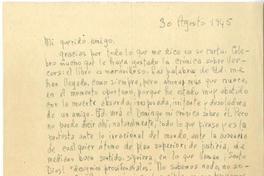 30 Agosto 1945
Mi querido amigo,
gracias por todo lo que me dice en su carta. Cele-
bro mucho que le haya gustado la crónica sobre
el libro es maravilloso. Las palabras de Ud. me
han llegado, como siempre, pero ahora más que nunca, en
en el momento oportuno, porque he estado muy abatido
con la muerte absurda, inesperada, irritante y desoladora
de un amigo. Ud. verá el Domingo mi crónica sobre él. Pero
no puedo decir ahí, naturalmente, todo lo que yo pienso es la
protesta ante lo irracional del mundo, ante la ausencia
de cualquier átomo de plan superior de justicia, de
mediano buen sentido siquiera en lo que llaman, Santo
Dios! designios providenciales. No sabemos nada no se